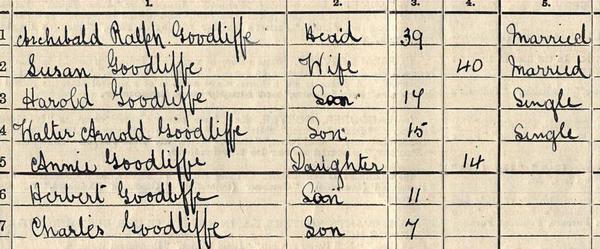 1. 2. 3. 4. 5.
1 Archibald Ralph Goodliffe Head 39 Married
2 Susan Goodliffe Wife 40 Married
3 Harold Goodliffe Son 17 Single
4 Walter Arnold Goodliffe Son 15 Single
5 Annie Goodliffe Daughter 14
6 Herbert Goodliffe Son 11
7 Charles Goodliffe Son 7